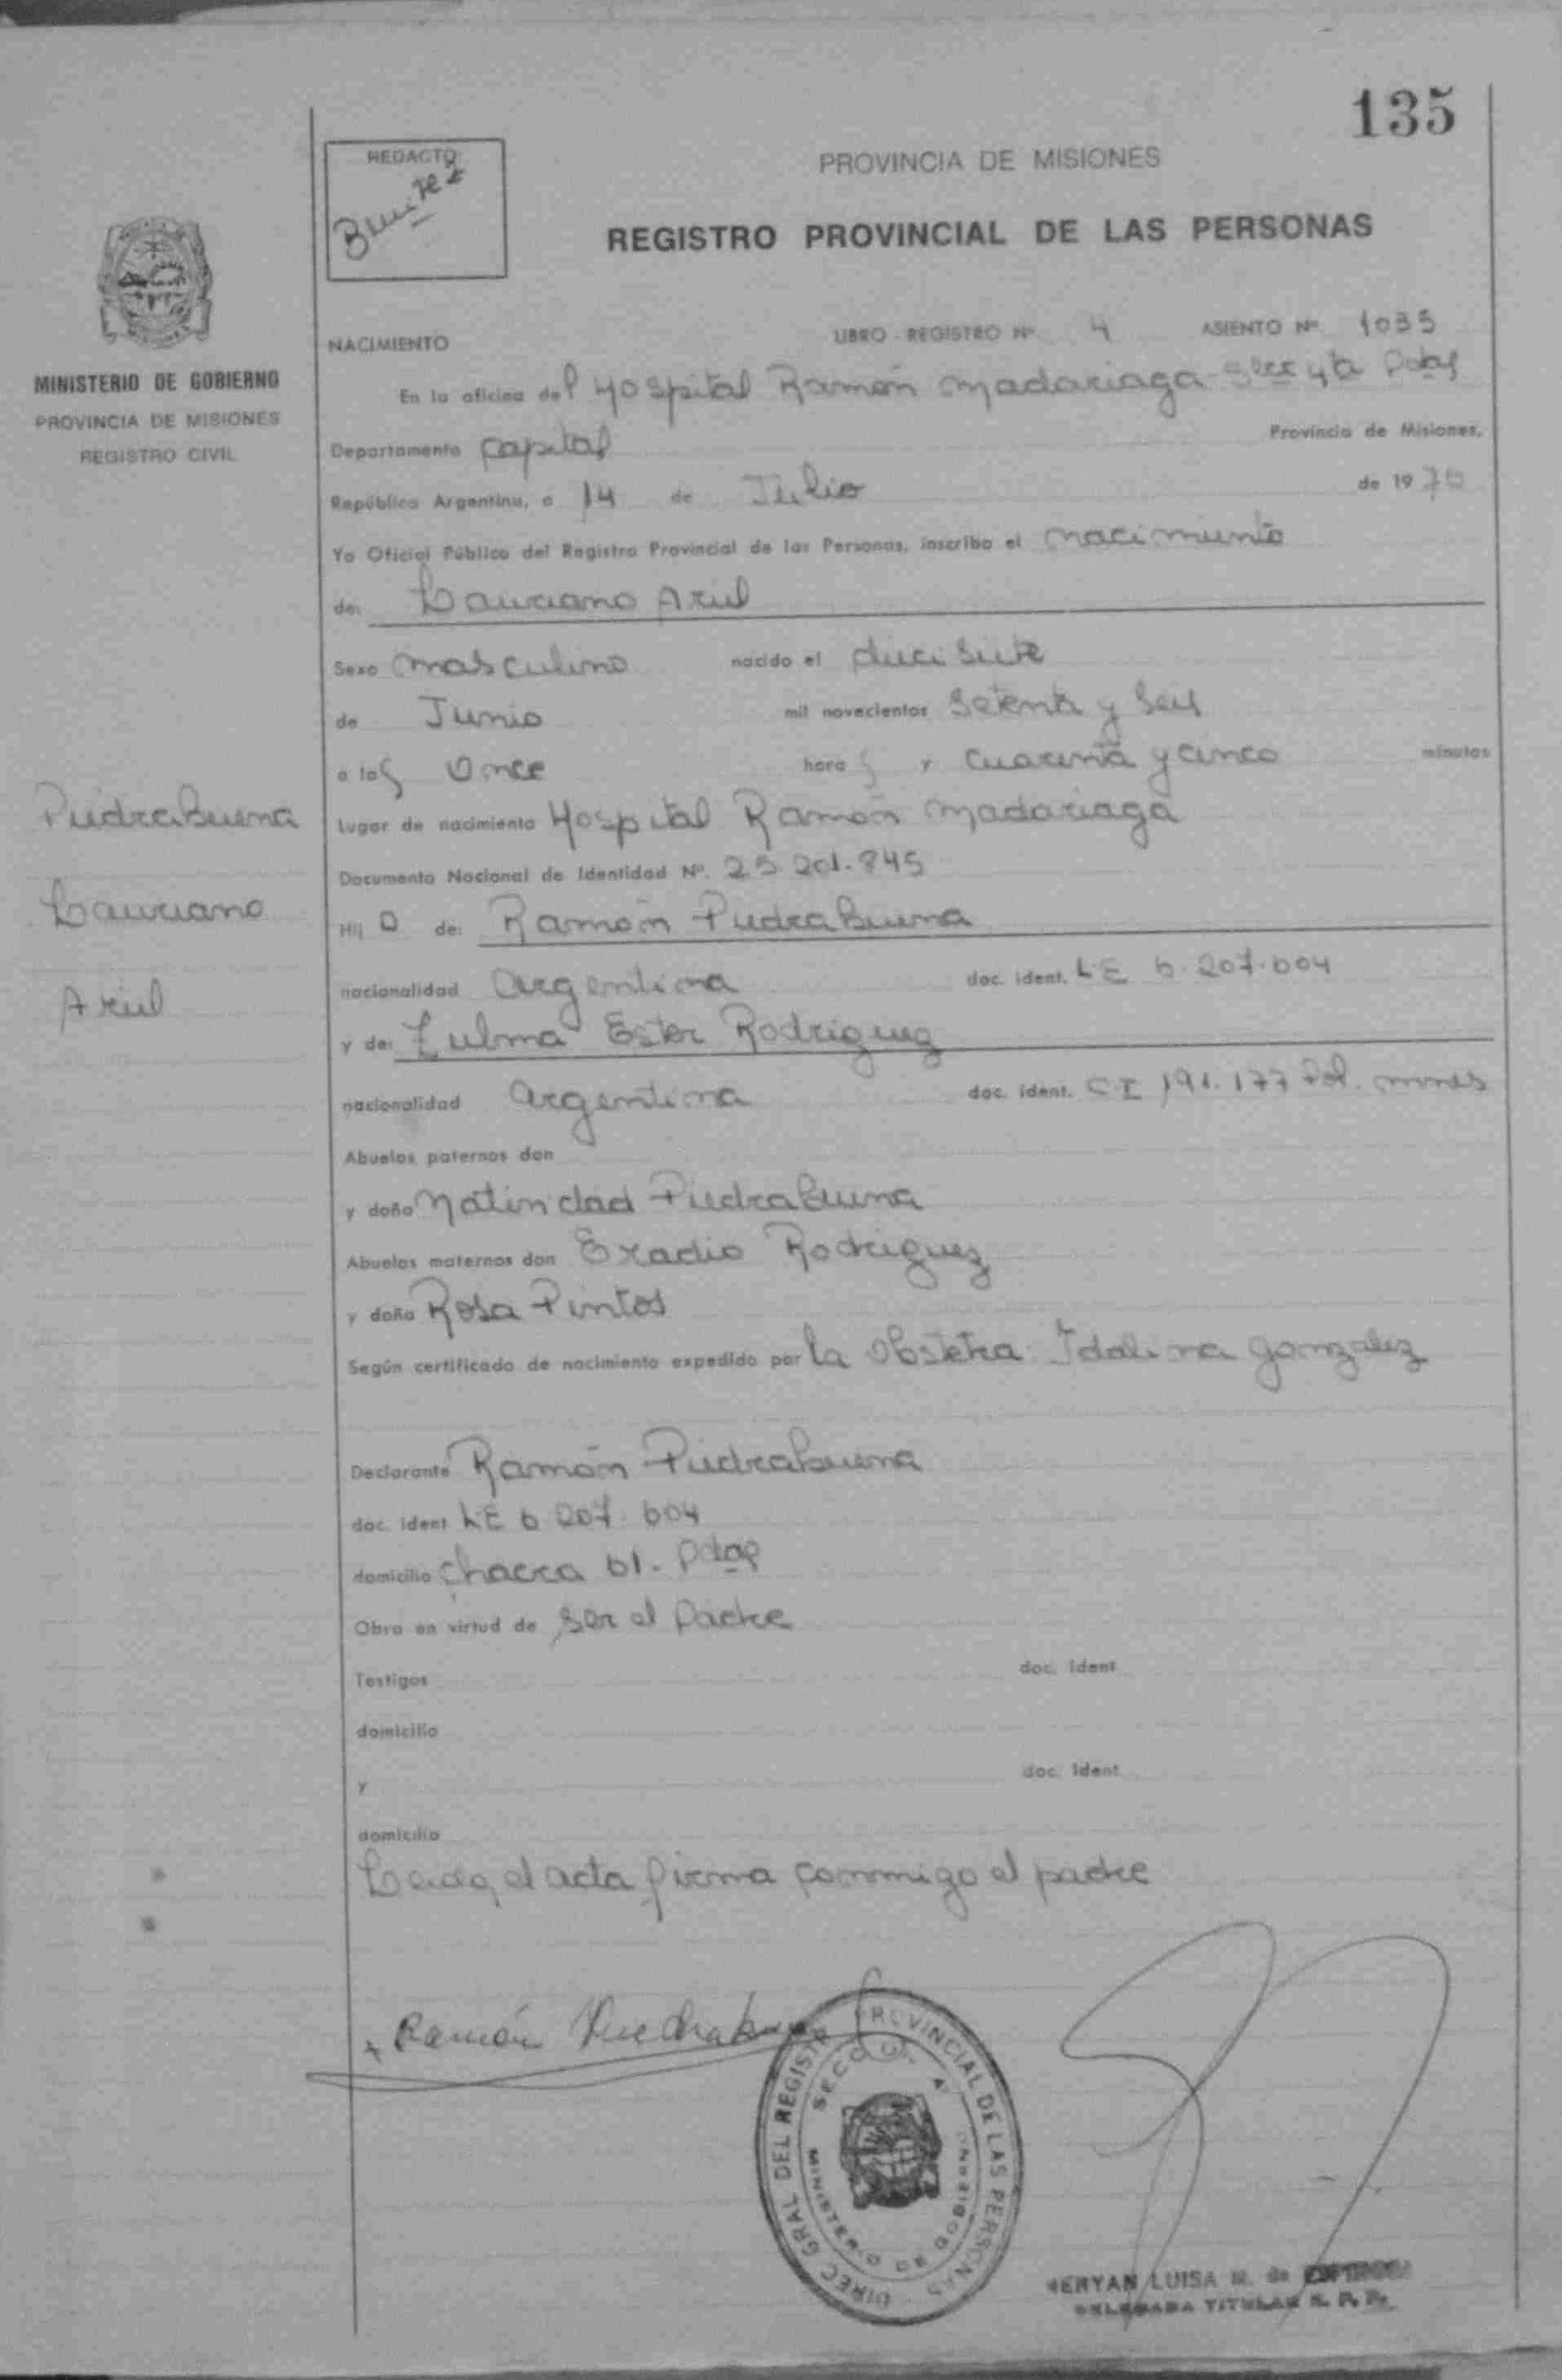 135
REDACTO
PROVINCIA DE MISIONES
REGISTRO PROVINCIAL DE LAS PERSONAS
MINISTERIO DE GOBIERNO
PROVINCIA DE MISIONES
REGISTRO CIVIL
NACIMIENTO LIBRO - REGISTRO Nº. 4 ASIENTO Nº. 1035
En la oficina del Hospital Ramón Madariaga Pdas
Departamento Capital Provincia de Misiones,
República Argentina, a 14 de Julio de 1976
Yo Oficial Público del Registro Provincial de las Personas, inscribo el nacimiento
de: Laureano Ariel
Sexo masculino nacido el diecisiete
de Junio mil novecientos setenta y seis
a las once horas y cuarenta y cinco minutos
Lugar de nacimiento Hospital Ramón Madariaga
Documento Nacional de Identidad Nº. 25.201.845
Hijo de: Ramón Piedrabuena
nacionalidad argentina doc. ident. LE 6.207.604
y de: Zulma Ester Rodriguez
nacionalidad argentina doc. ident. CI 191.177 Pol. mnes
Abuelos paternos don
y doña Natividad Piedrabuena
Abuelos maternos don Eradio Rodriguez
y doña Rosa Pintos
Según certificado de nacimiento expedido por la Obstetra Idalina Gonzalez
Declarante Ramón Piedrabuena
doc. ident LE 6 207 604
domicilio Chacra 61 - Pdas
Obra en virtud de ser el padre
Testigos doc. ident
domicilio
y doc. ident
domicilio
Leida el acta firma conmigo el padre
Piedrabuena
Laureano
Ariel
Ramón Piedrabuena
DIREC GRAL DEL REGISTRO PROVINCIAL DE LAS PERSONAS
MINISTERIO DE GOBIERNO
LUISA M. de
DELEGADA TITULAR R. P. P.